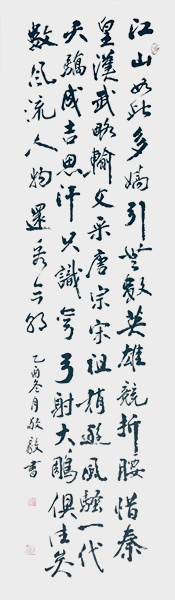 江山如此多嬌引無數英雄競折腰惜秦
皇漢武略輸文采唐宗宋祖稍遜風騷一代
天驕成吉思汗只識彎弓射大鵰俱往矣
數風流人物還看今朝
乙酉冬月敬毅書